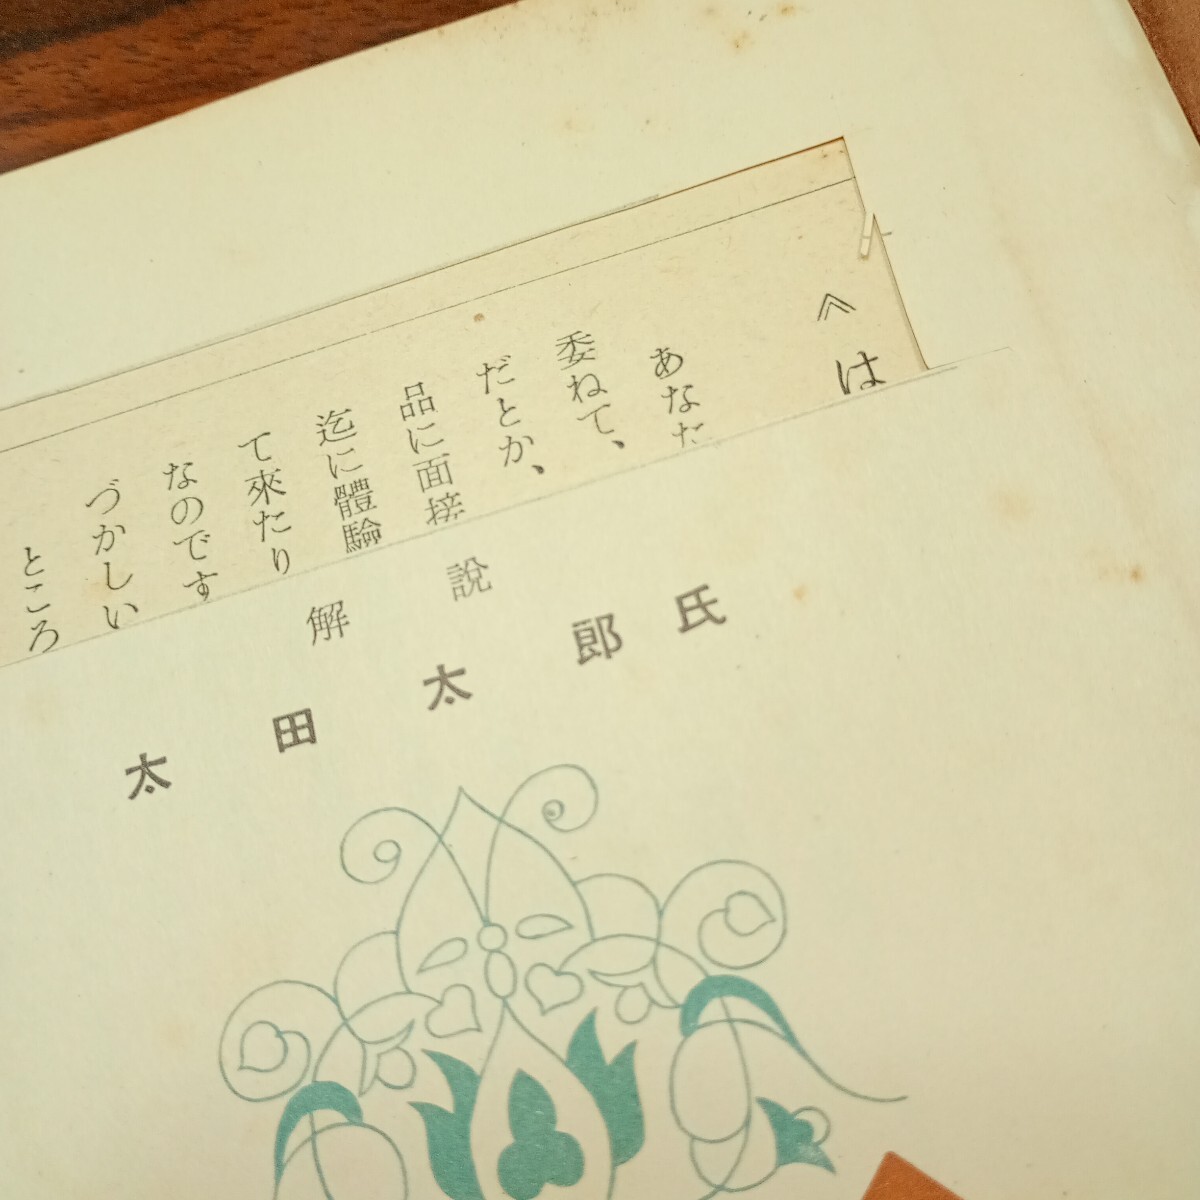 ≪は
あなた
委ねて、
だとか、
品に面接
迄に體驗
て來たり
なのです
づかしい
ところ
解説
太田太郎氏